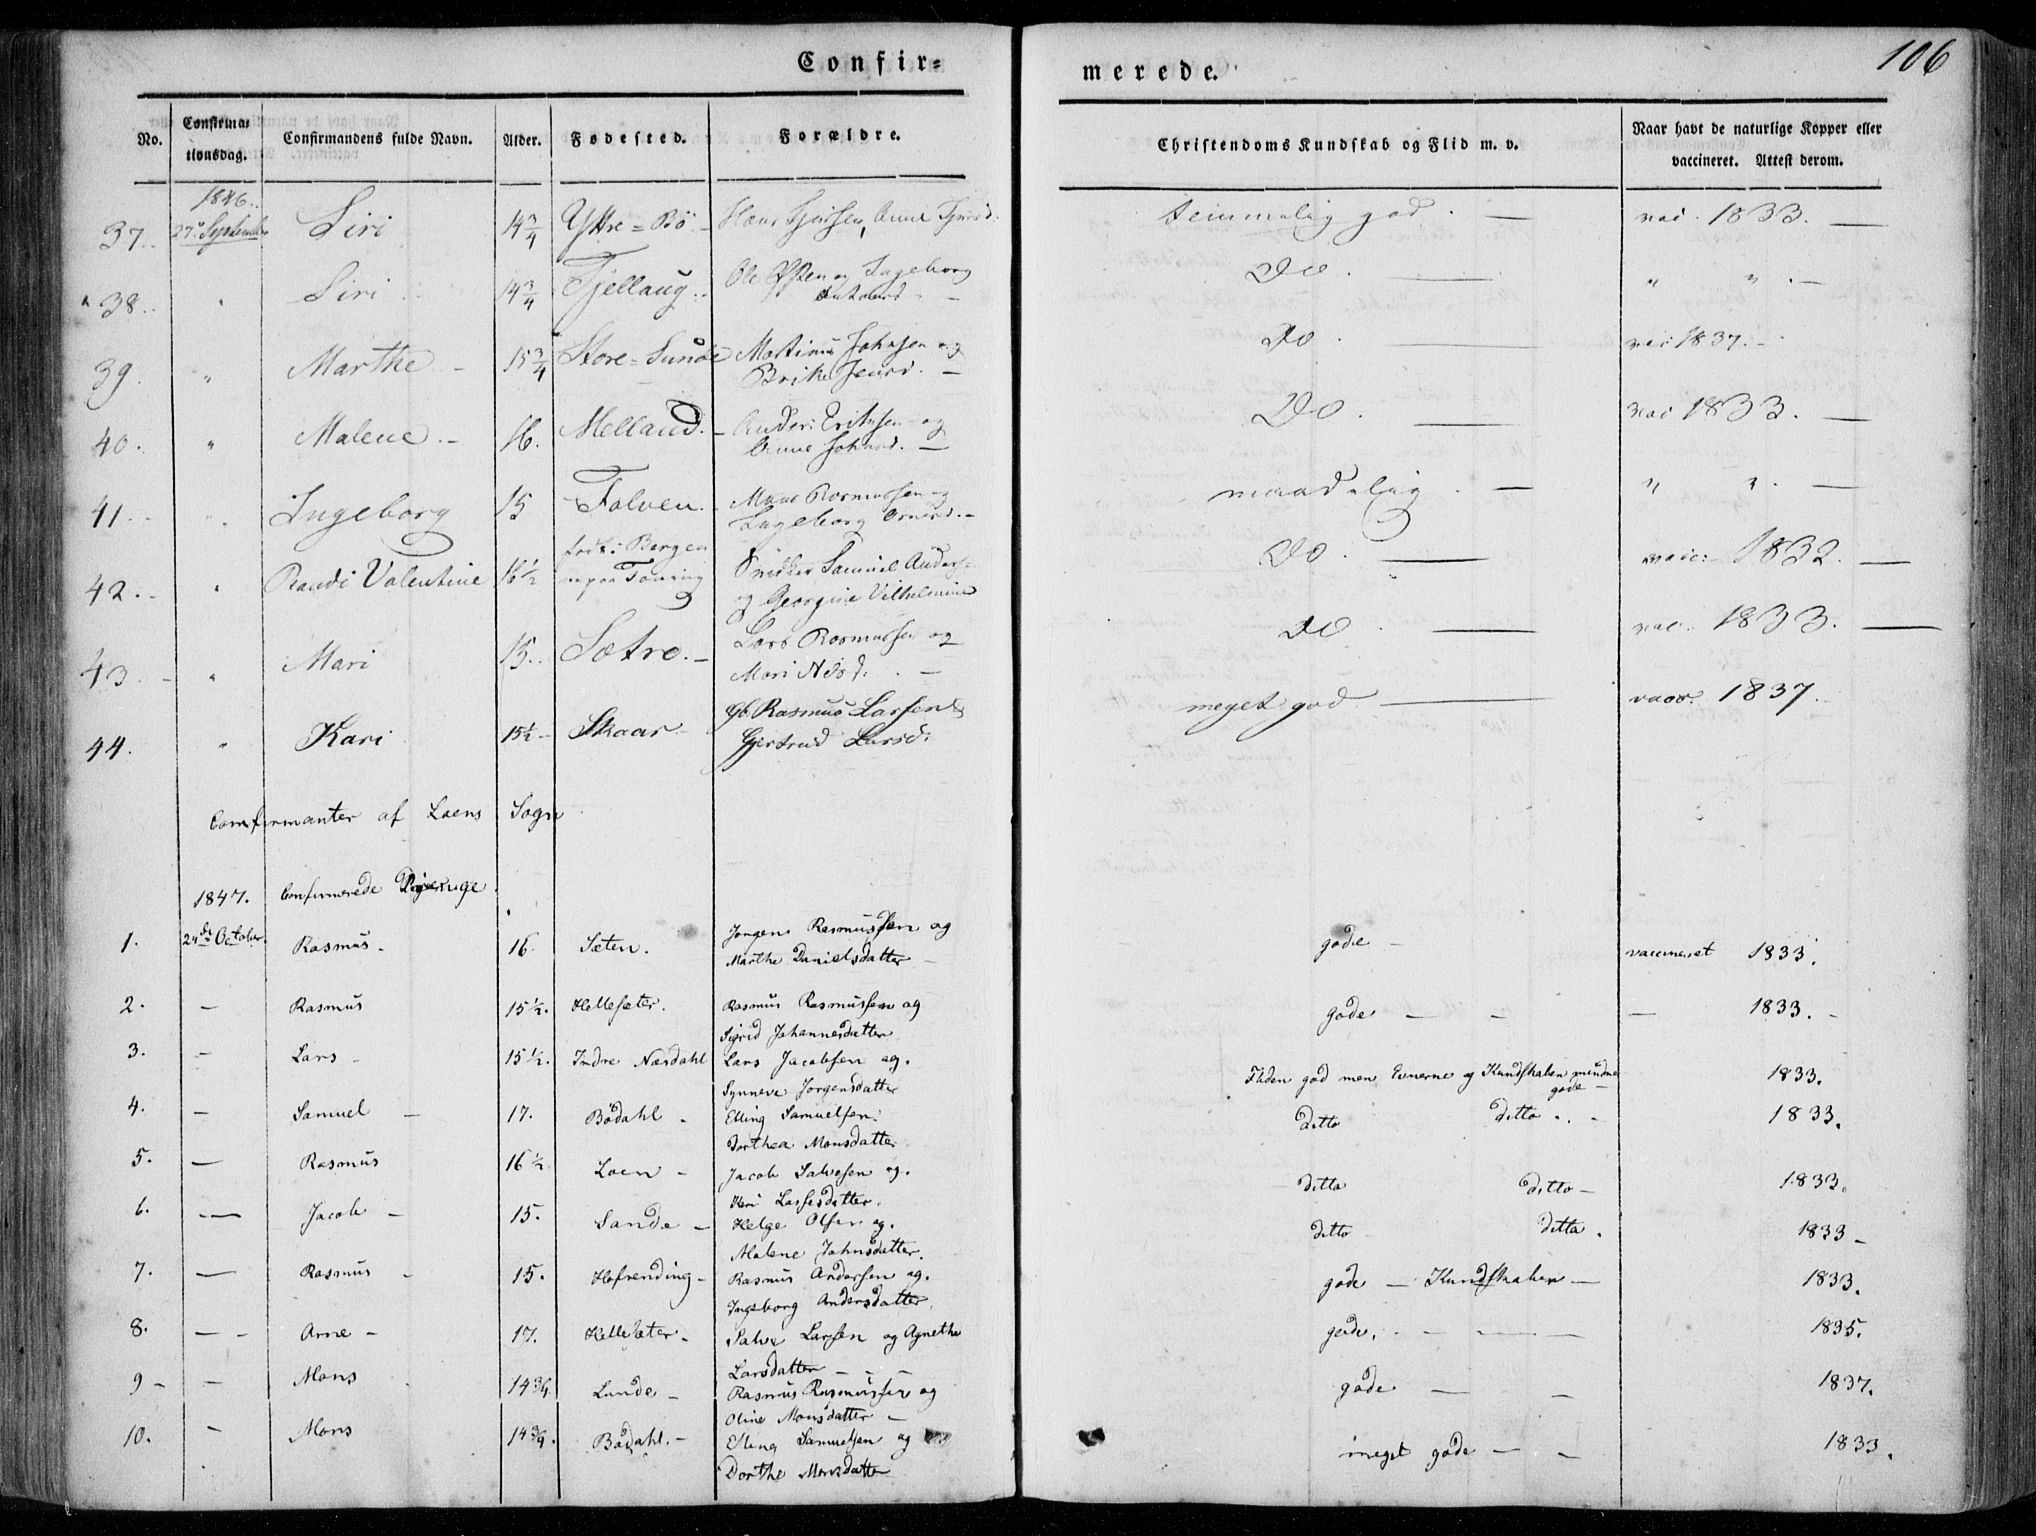 Confir=
merede.
106
No.
Confirma=
tionsdag.
Confirmandens fulde Navn.
Alder.
Fødested.
Forældre.
Christendoms Kundskab og Flid m. v.
Naar havt de naturlige Kopper eller
vaccineret. Attest derom.
1846.
37. 27de September Siri 14 3/4 Yttre=Bö Hans temmelig god. vac. 1833.
38. " Siri 14 3/4 Fjellaug Ole og Ingeborg Do. " "
39. " Marthe 15 3/4 Store=Sunde Martinus Johnsen og Do. vac 1837.
Brithe
40. " Malene 16. Melland Anders Eriksen og Do. vac 1833.
Anne Johnsd.
41. " Ingeborg 15 Folven Mons Rasmussen og maadelig " "
Ingeborg
42. " Randi Valentine 16 1/2 født i Bergen Snidker Samuel Anders- Do. vacc: 1832.
og Georgine Vilhelmine
43. " Mari 15. Sætre Lars Rasmussen og Do vac. 1833.
Mari
44. " Kari 15 1/2 Skaar Gb. Rasmus Larsen & meget god vacc. 1837.
Gjertrud Larsd:
Confirmanter af Loens Sogn
1847. Confirmerede Drenge.
1. 24de October Rasmus 16. Sæten. Jørgen Rasmussen og gode vaccineret 1833.
Marthe Danielsdatter
2. — Rasmus 15 1/2. Hellesæter. Rasmus Rasmussen og gode — 1833.
Sigrid Johannesdatter
3. — Lars 15 1/2. Indre Næsdahl Lars Jacobsen og. Fliden god men Evnerne og Kundskaben mindre 1833.
gode
Synneve Jørgensdatter
4. — Samuel 17. Bödahl Elling Samuelsen ditto ditto 1833.
Dorthea Monsdatter
5. — Rasmus 16 1/2 Loen Jacob Salvesen og. ditto ditto 1833.
Lassesdatter.
6. — Jacob 15. Sande Helge Olsen og. ditto ditto. 1833
Malene Johnsdatter.
7. — Rasmus 15. Hofrending Rasmus Andersen og. gode — Kundskaber 1833.
Ingeborg Andersdatter.
8. — Arne 17. Hellesæter Salve Larsen og Agnethe gode. 1835.
Larsdatter
9 — Mons 14 3/4 Lunde Rasmus Rasmussen og gode 1837.
Oline Monsdatter
10. — Mons 14 3/4. Bödahl. Elling Samuelsen og meget gode 1833.
Dorthe Monsdatter